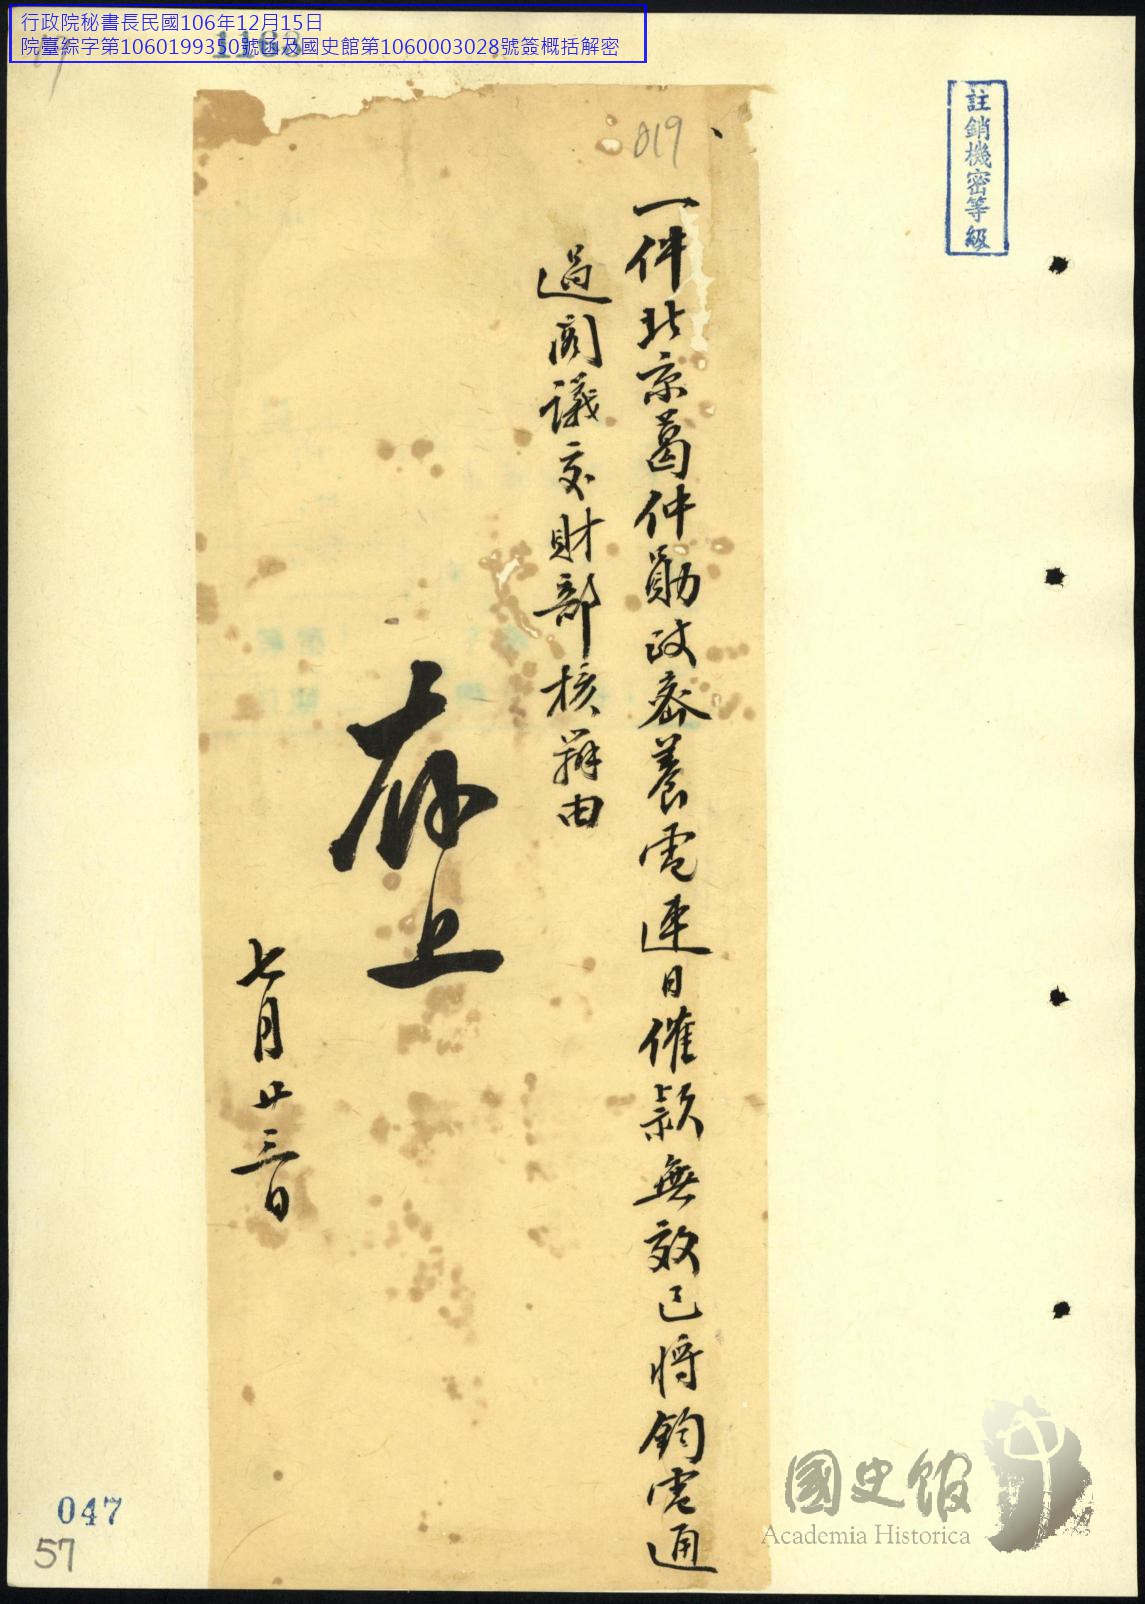 行政院秘書長民國106年12月15日
院臺綜字第1060199350號函及國史館第1060003028號簽概括解密
註銷機密等級
019
一件北京葛仲勛致齋養電連日催款無效已將鈞電通
過閣議交財部核辦由
存上
七月廿三日
047
57
國史館
Academia Historica